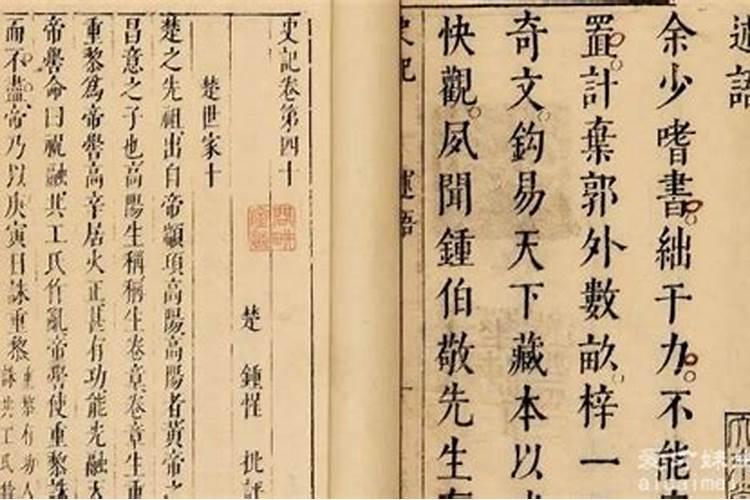 述語
余少嗜書絀于力不能
置計棄郭外數畝梓一
奇文鈎易天下藏本以
快觀夙聞鍾伯敬先生有
史記
述語
史記卷第四十
楚 鍾惺 批評
楚世家十
楚之先祖出自帝顓頊高陽高陽者黃帝之
昌意之子也高陽生稱稱生卷章卷章生重
重黎為帝嚳高辛居火正甚有功能光融天
帝嚳命曰祝融共工氏作亂帝嚳使重黎誅
而不盡帝乃以庚寅日誅重黎